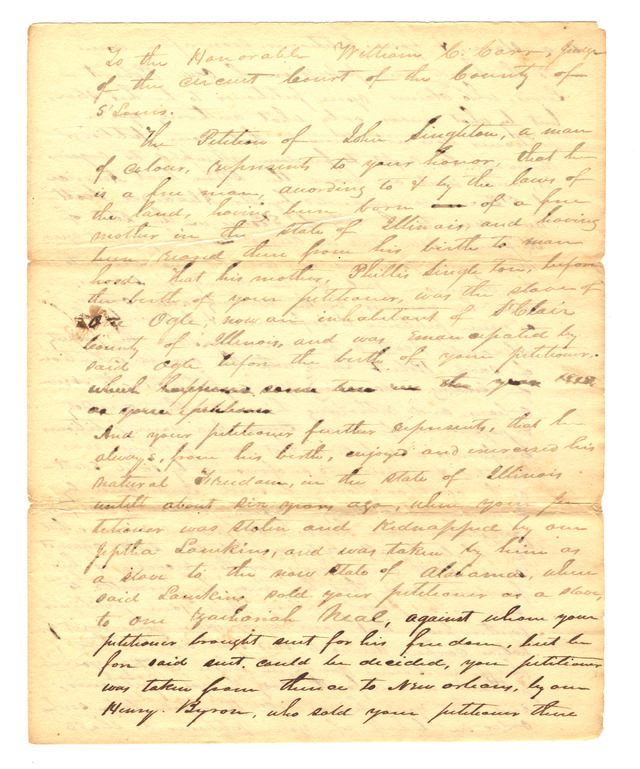 To the Honorable William C. Carr, Judge
of the circuit Court of the County of
St Louis.
The Petition of John Singleton, a man
of colour, represents to your honor, that he
is a free man, acording to & by the laws of
the land, having been born of a free
mother in the state of Illinois, and having
been reared there from his birth to man
hood. That his mother, Phillis Singleton, before
the birth of your petitioner, was the slave of
Ogle, now an inhabitant of St Clair
County of Illinois, and was emancipated by
said Ogle before the birth of your petitioner.
which happened some time in the year
as your petitioner
And your petitioner further represents, that he
always, from his birth, enjoyed and exercised his
natural Freedom, in the state of Illinois
untill about six years ago, when your pe
titioner was stolen and Kidnapped by one
Jeptha Lamkins, and was taken by him as
a slave to the now state of Alabama, where
said Lamkins sold your petitioner as a slave,
to one Zachariah Neal, against whom your
petitioner brought suit for his freedom, but be
fore said suit could be decided, your petitioner
was taken from thence to New orleans, by one
Henry Byron, who sold your petitioner there